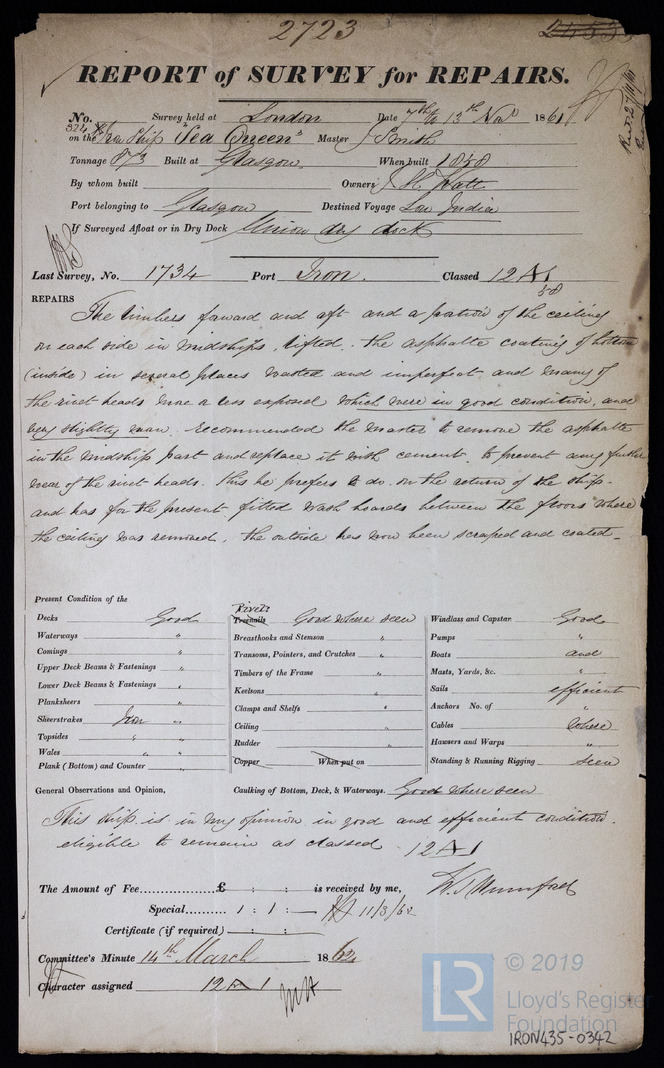 2723
REPORT of SURVEY for REPAIRS.
No. Survey held at London Date 7th & 13th Nov 1861
on the Iron Ship "Sea Queen" Master J Smith
Tonnage 873 Built at Glasgow When built 1858
By whom built Owners J H Watt
Port belonging to Glasgow Destined Voyage India
If Surveyed Afloat or in Dry Dock Union dry dock
Last Survey, No. 1734 Port Iron. Classed 12 A1
58
REPAIRS
The limbers forward and aft and a portion of the ceiling
on each side in midships, lifted. the asphalte coating of bottom
(inside) in several places wasted and imperfect and many of
the rivet heads more or less exposed which were in good condition, and
very slightly worn. recommended the master to remove the asphalte
in the midship part and replace it with cement to prevent any further
wear of the rivet heads. this he prefers to do on the return of the ship.
and has for the present fitted wash boards between the floors where
the ceiling was removed. the outside has now been scraped and coated.
Present Condition of the
Decks Good
Waterways "
Comings "
Upper Deck Beams & Fastenings "
Lower Deck Beams & Fastenings "
Planksheers "
Sheerstrakes Iron "
Topsides " "
Wales " "
Plank (Bottom) and Counter "
Rivets
Treenails Good where seen
Breasthooks and Stemson "
Transoms, Pointers, and Crutches "
Timbers of the Frame "
Keelsons "
Clamps and Shelfs "
Ceiling "
Rudder "
Copper When put on
Windlass and Capstan Good
Pumps "
Boats and
Masts, Yards, &c. "
Sails efficient
Anchors No. of "
Cables where
Hawsers and Warps "
Standing & Running Rigging seen
General Observations and Opinion, Caulking of Bottom, Deck, & Waterways. Good where seen
This ship is in my opinion in good and efficient condition.
eligible to remain as classed 12 A1
The Amount of Fee £ : : is received by me,
Special 1 : 1 : — 11/3/62
Certificate (if required) : :
Committee's Minute 14th March 1862
Character assigned 12 A 1
© 2019
LR
Lloyd's Register
Foundation
IRON435-0342